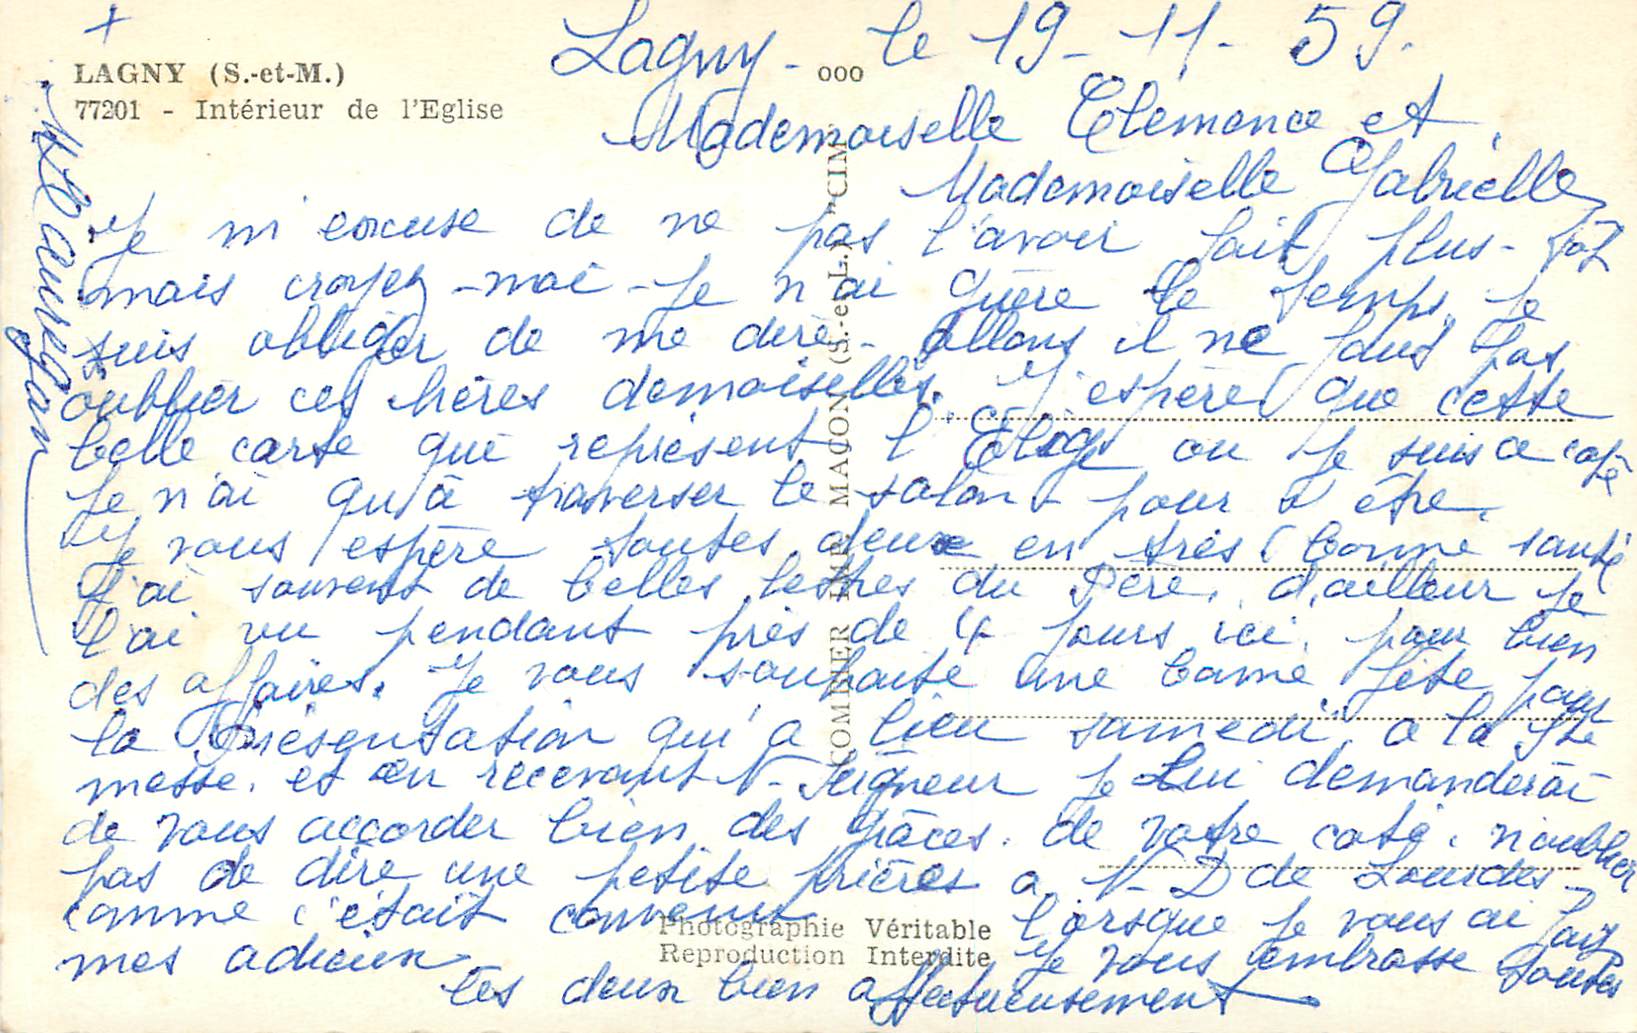 +
LAGNY (S.-et-M.)
77201 - Intérieur de l'Eglise
ooo
Lagny - le 19-11-59.
Mademoiselle Clemence et
Mademoiselle Gabrielle
Je m'excuse de ne pas l'avoir fait plus-tôt
mais croyez-moi - Je n'ai guère le temps. Je
suis obliger de me dire - Allons il ne faus pas
oublier ces chères demoiselles. J'espère que cette
belle carte que représent l'Eloge ou Je suis a coté
Je n'ai qu'à traverser le salon - pour y être.
Je vous espère toutes deux en très bonne santé
J'ai souvent de belles lettres du Père. d'ailleur je
l'ai vu pendant près de 4 jours ici. pour bien
des affaires. Je vous souhaite une bonne fête pour
la Présentation qui a lieu samedi a la Ste
messe. et en recevant N-Seigneur je Lui demanderai
de vous accorder bien des grâces. de votre coté. n'oublier
pas de dire une petite prières a N-D de Lourdes -
comme c'était convenu lorsque je vous ai fait
mes adieux. Je vous embrasse toutes
les deux bien affectueusement
COMBIER IMP. MAÇON (S.-et-L.) "CIM"
Photographie Véritable
Reproduction Interdite